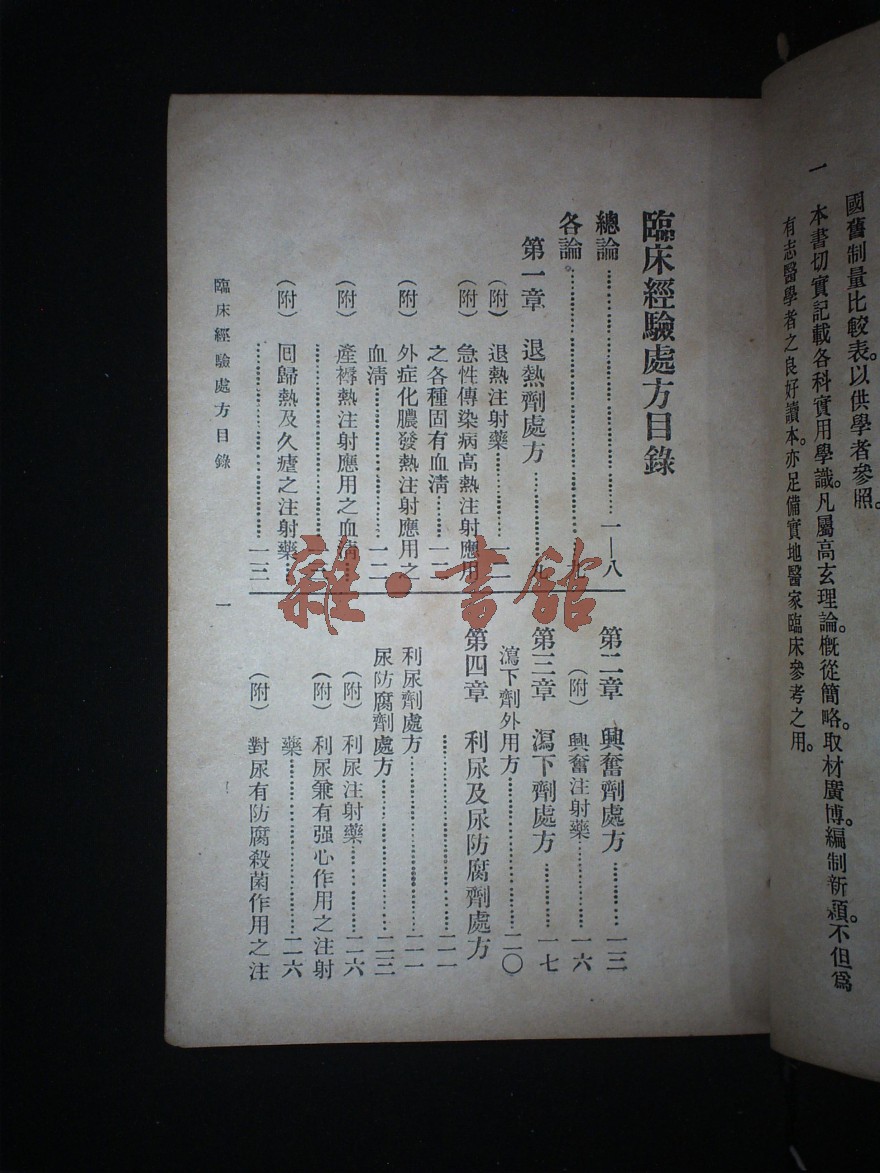 國舊制量比較表。以供學者參照。
一 本書切實記載各科實用學識。凡屬高玄理論。概從簡略。取材廣博。編制新穎。不但爲
有志醫學者之良好讀本。亦足備實地醫家臨床參考之用。
臨床經驗處方目錄
總論…………一—八
各論。…………九
第一章 退熱劑處方…………九
(附) 退熱注射藥…………
(附) 急性傳染病高熱注射應用
之各種固有血淸……一二
(附) 外症化膿發熱注射應用之
血淸…………一二
(附) 產褥熱注射應用之血淸…
…………
(附) 回歸熱及久瘧之注射藥…
…………一三
第二章 興奮劑處方…………一三
(附) 興奮注射藥…………一六
第三章 瀉下劑處方…………一七
瀉下劑外用方…………二〇
第四章 利尿及尿防腐劑處方
…………二一
利尿劑處方…………二一
尿防腐劑處方…………二三
(附) 利尿注射藥…………二六
(附) 利尿兼有强心作用之注射
藥…………二六
(附) 對尿有防腐殺菌作用之注
臨床經驗處方目錄
一
雜·書館